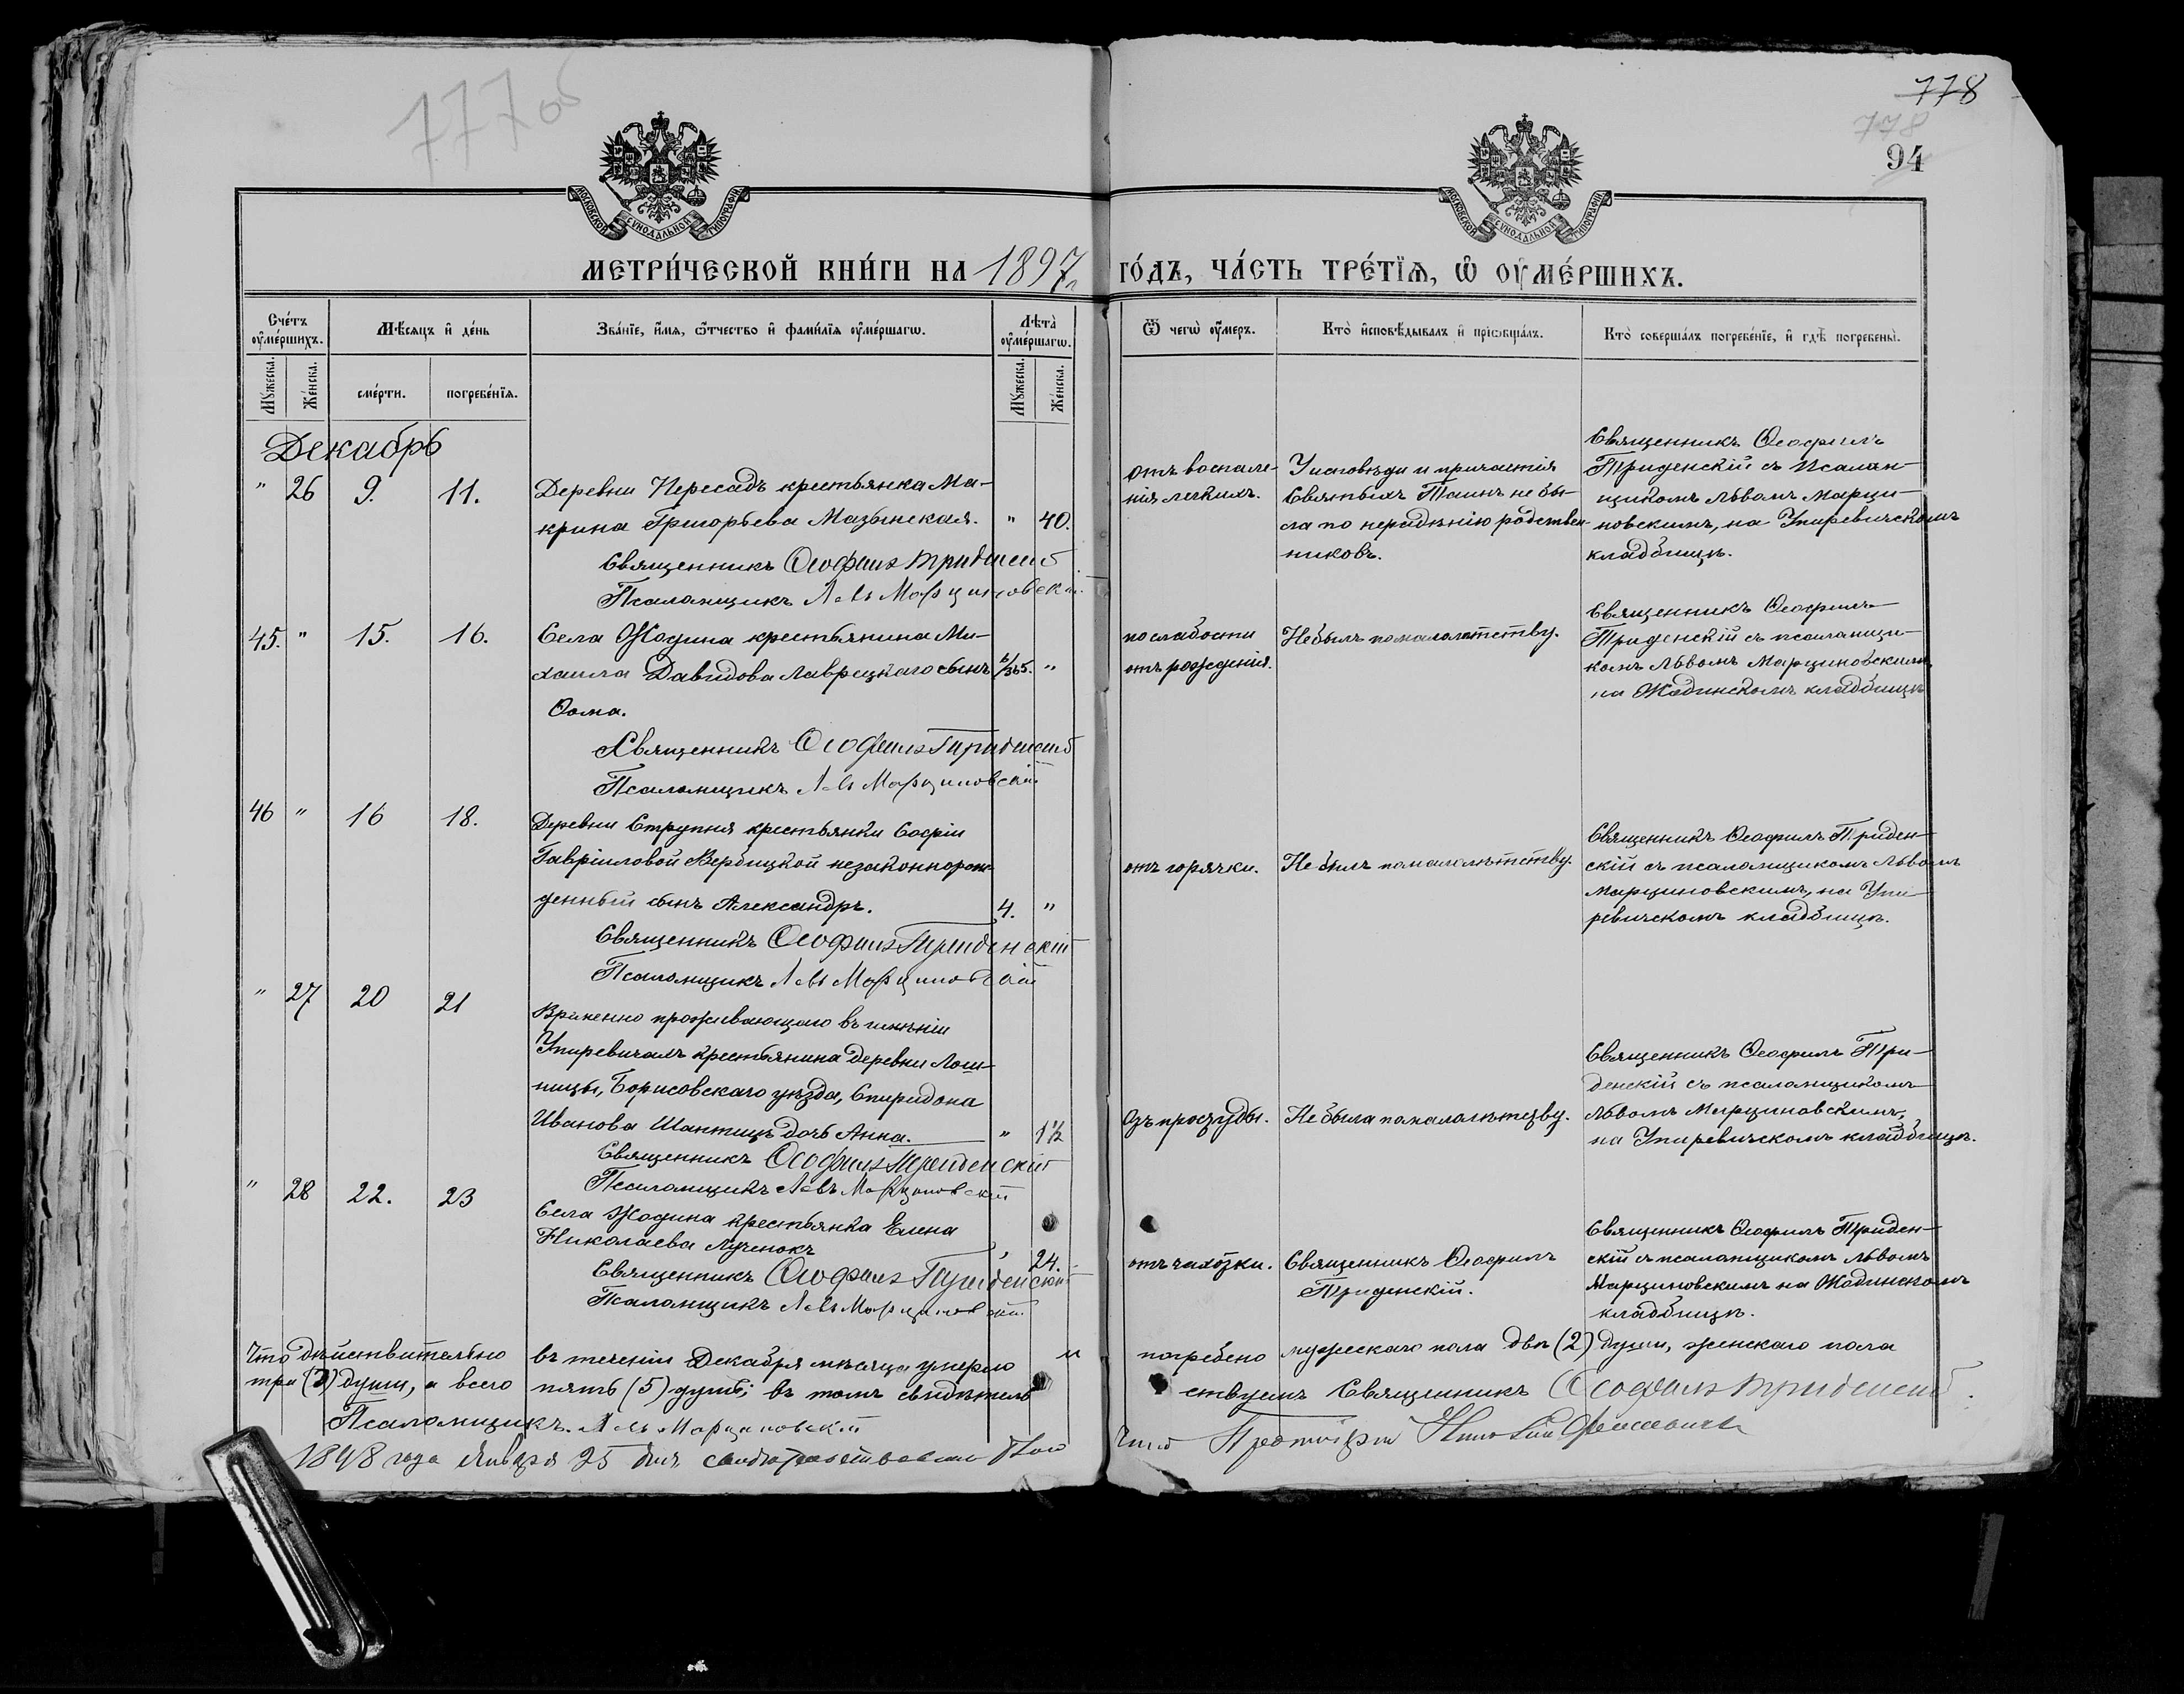 777 об
778
778
94
МОСКОВСКОЙ СѴНОДАЛЬНОЙ ТИПОГРАФІИ
МОСКОВСКОЙ СѴНОДАЛЬНОЙ ТИПОГРАФІИ
МЕТРИ́ЧЕСКОЙ КНИ́ГИ НА 1897 г. ГО́ДЪ, ЧА́СТЬ ТРЕ́ТІѦ, Ѡ҆ ОУ҆МЕ́РШИХЪ.
Сче́тъ оу҆ме́ршихъ.
Мѣ́сяцъ и҆ де́нь
Зва́нїе, и҆́мя, ѻ҆́тчество и҆ фами́лїя оу҆ме́ршагѡ.
Лѣ́та оу҆ме́ршагѡ.
Ѿ чегѡ̀ оу҆́меръ.
Кто̀ и҆сповѣ́дывалъ и҆ прїѡбща́лъ.
Кто̀ соверша́лъ погребе́нїе, и҆ гдѣ̀ погребены̀.
Мꙋ́жеска.
Же́нска.
сме́рти.
погребе́нїя.
Мꙋ́жеска.
Же́нска.
Декабрь
" 26 9. 11.
Деревни Пересадъ крестьянка Ма-
крина Григорьева Мазынская. " 40.
Священникъ Ѳеофилъ Триденскій
Псаломщикъ Левъ Марциновскій
отъ воспале-
нія легкихъ.
У исповѣди и причастія
Святыхъ Таинъ не бы-
ла по нерадѣнію родствен-
никовъ.
Священникъ Ѳеофилъ
Триденскій съ псалом-
щикомъ Львомъ Марци-
новскимъ, на Упиревичскомъ
кладбищѣ.
45. " 15. 16.
Села Жодина крестьянина Ми-
хаила Давидова Лаврецкаго сынъ 6/365. "
Ѳома.
Священникъ Ѳеофилъ Триденскій
Псаломщикъ Левъ Марциновскій
по слабости
отъ рожденія.
Не былъ по малолѣтству.
Священникъ Ѳеофилъ
Триденскій съ псаломщи-
комъ Львомъ Марциновскимъ,
на Жодинскомъ кладбищѣ
46 " 16 18.
Деревни Струпня крестьянки Софіи
Гавріиловой Вербицкой незаконнорож-
денный сынъ Александръ. 4. "
Священникъ Ѳеофилъ Триденскій
Псаломщикъ Левъ Марциновскій
отъ горячки.
Не былъ по малолѣтству.
Священникъ Ѳеофилъ Триден-
скій съ псаломщикомъ Львомъ
Марциновскимъ, на Упи-
ревичскомъ кладбищѣ.
" 27 20 21
Временно проживающаго въ имѣніи
Упиревичахъ крестьянина деревни Лош-
ницы, Борисовскаго уѣзда, Спиридона
Иванова Шантицъ дочь Анна. " 1½
Священникъ Ѳеофилъ Триденскій
Псаломщикъ Левъ Марциновскій
Отъ простуды.
Не была по малолѣтству.
Священникъ Ѳеофилъ Три-
денскій съ псаломщикомъ
Львомъ Марциновскимъ,
на Упиревичскомъ кладбищѣ.
" 28 22. 23
Села Жодина крестьянка Елена
Николаева Лученокъ " 24.
Священникъ Ѳеофилъ Триденскій
Псаломщикъ Левъ Марциновскій
отъ чахотки.
Священникъ Ѳеофилъ
Триденскій.
Священникъ Ѳеофилъ Триден-
скій съ псаломщикомъ Львомъ
Марциновскимъ на Жодинскомъ
кладбищѣ.
Что дѣйствительно въ теченіи Декабря мѣсяца умерло и погребено мужескаго пола двѣ (2) души, женскаго пола
три (3) души, а всего пять (5) душъ; въ томъ свидѣтель ствуемъ Священникъ Ѳеофилъ Триденскій
Псаломщикъ Левъ Марциновскій
1898 года Января 25 дня свидѣтельствовалъ Благо чинный Протоіерей